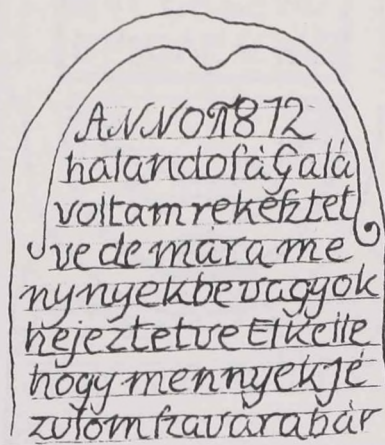 ANNO 1872
halandofáGalá
voltamrekeſztet
ve de mára me
nynyekbevagyok
hejeztetve Elkelle
hogymennyekJé
zulomſzavárabár